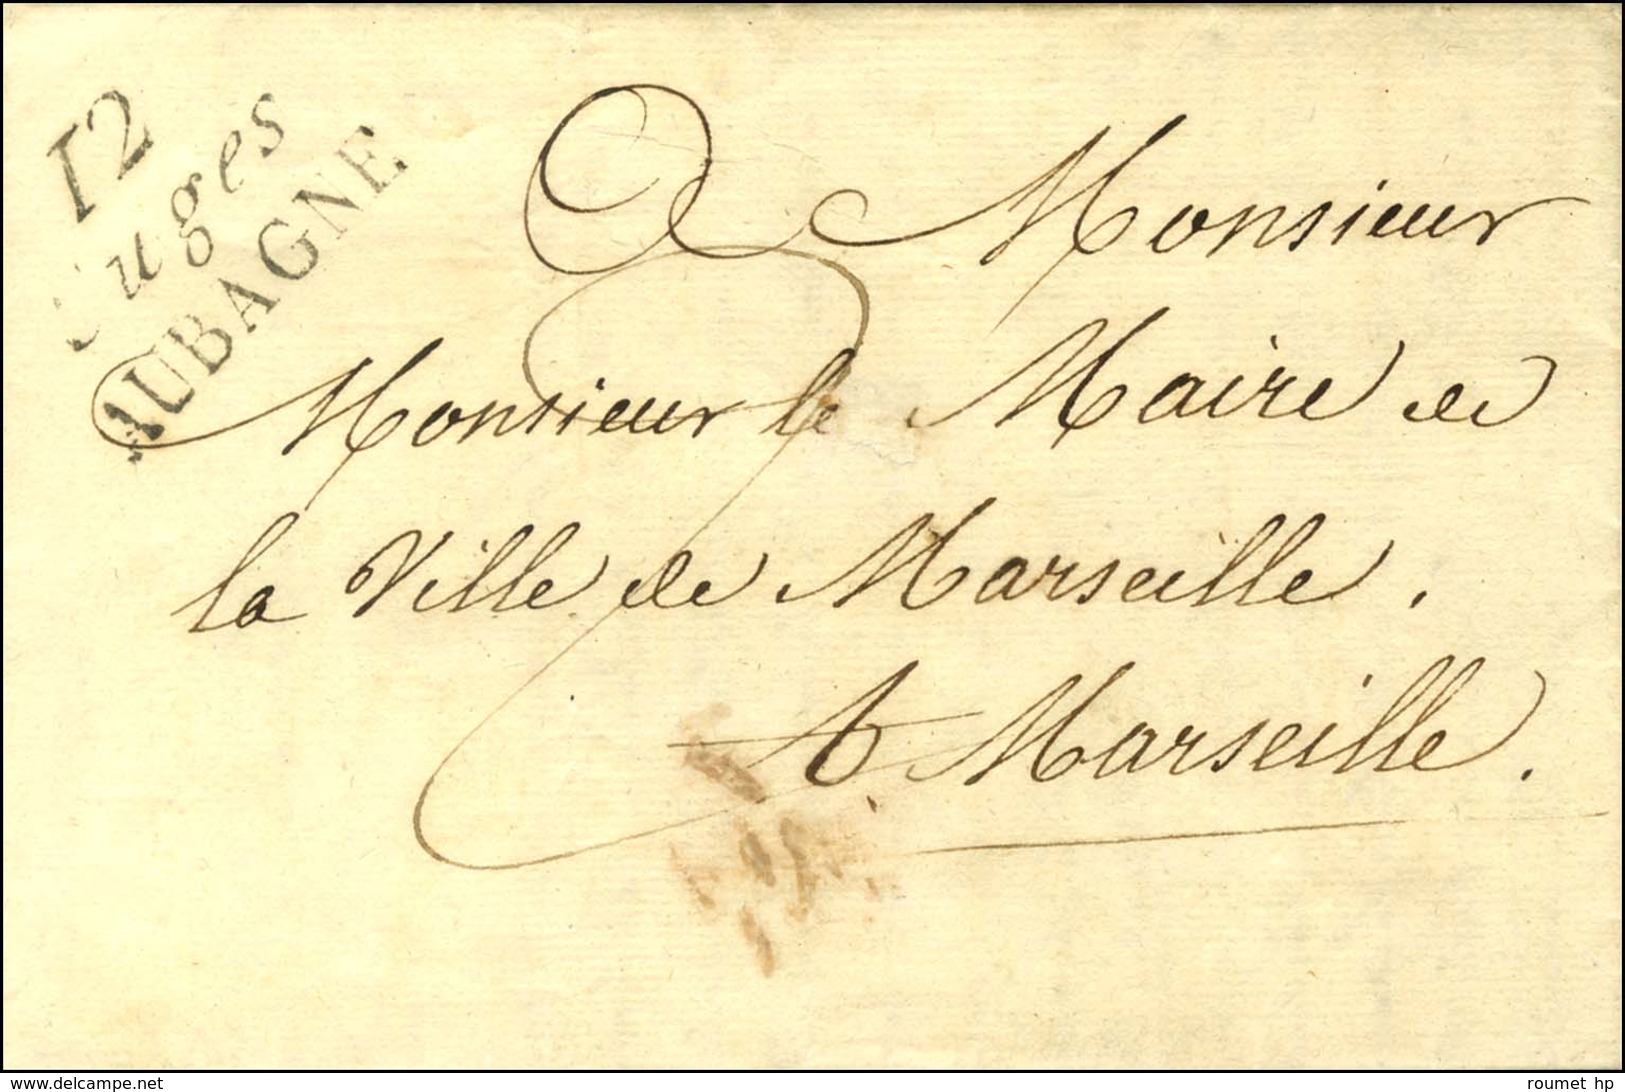 12
Cuges
AUBAGNE
A Monsieur
Monsieur le Maire de
la Ville de Marseille.
A Marseille.
www.delcampe.net
roumet hp